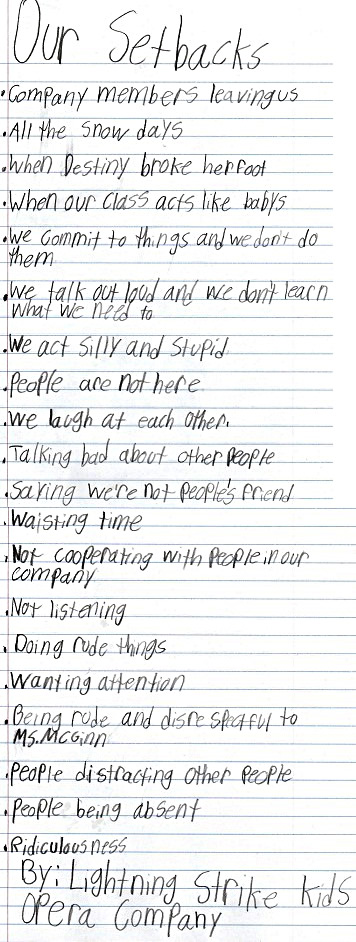 Our Setbacks
•Company members leaving us
•All the snow days
•When Destiny broke her foot
•When our class acts like babys
•We commit to things and we don't do
them
•We talk out loud and we don't learn
what we need to
•We act silly and stupid
•People are not here
•We laugh at each other.
•Talking bad about other people
•Saying we're not people's friend
•Waisting time
•Not cooperating with people in our
company
•Not listening
•Doing rude things
•Wanting attention
•Being rude and disrespectful to
Ms. McGinn
•People distracting other people
•People being absent
•Ridiculousness
By: Lightning Strike Kids
Opera Company